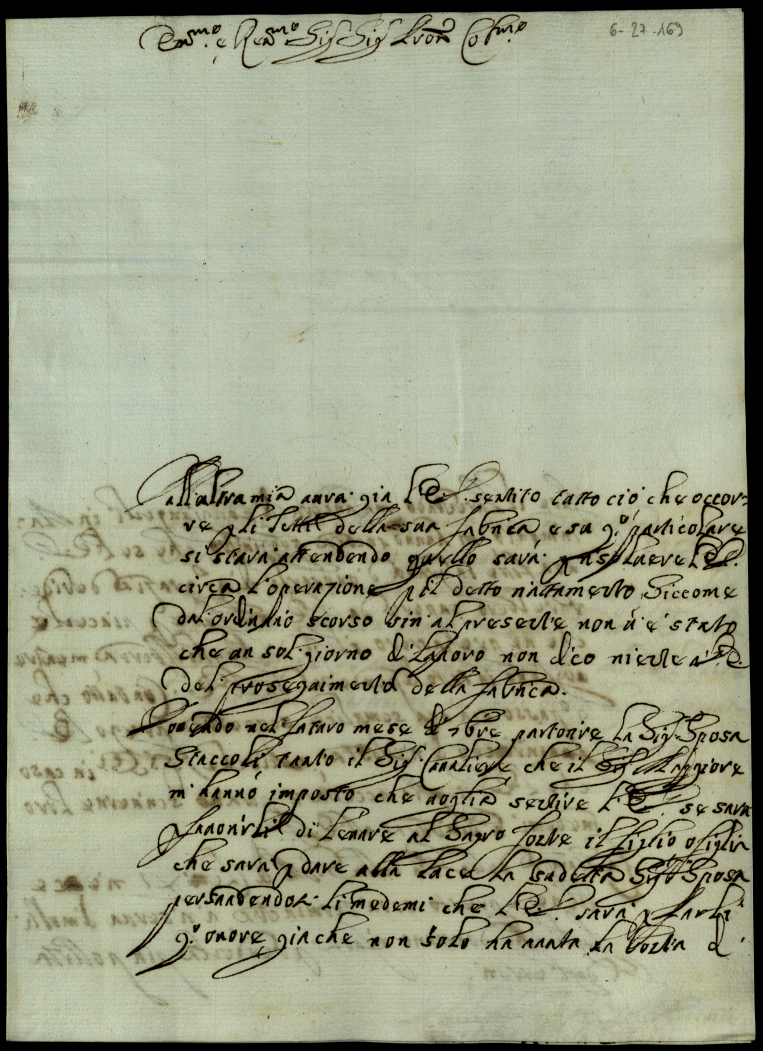 Em.mo e Rev.mo Sig.r Sig.r Pron Col.mo
6-27-169
All'altra mia avrà già V.E. sentito tutto ciò che occor=
re p li Tetti della sua fabrica, e su q.o particolare
si starà attendendo quello sarà p risolvere V.E.
circa l'operazione del detto riattamento, Siccome
dal'ordinario scorso sin al presente non vi è stato
che un sol giorno di lavoro non dico niente a V.E.
del proseguimento della fabrica.
Dovendo nel futuro mese di 7bre partorire la Sig.ra Sposa
Staccoli tanto il Sig.r Cavaliere che il Sig.r Maggiore
m'hanno imposto che voglia sentire V.E. se sarà
p favorirli di levare al Sagro fonte il figlio o figlia
che sarà p dare alla luce la sudetta Sig.ra Sposa
persuadendosi li medemi che V.E. sarà p farli
q.o onore, già che non solo ha avuta la bontà d